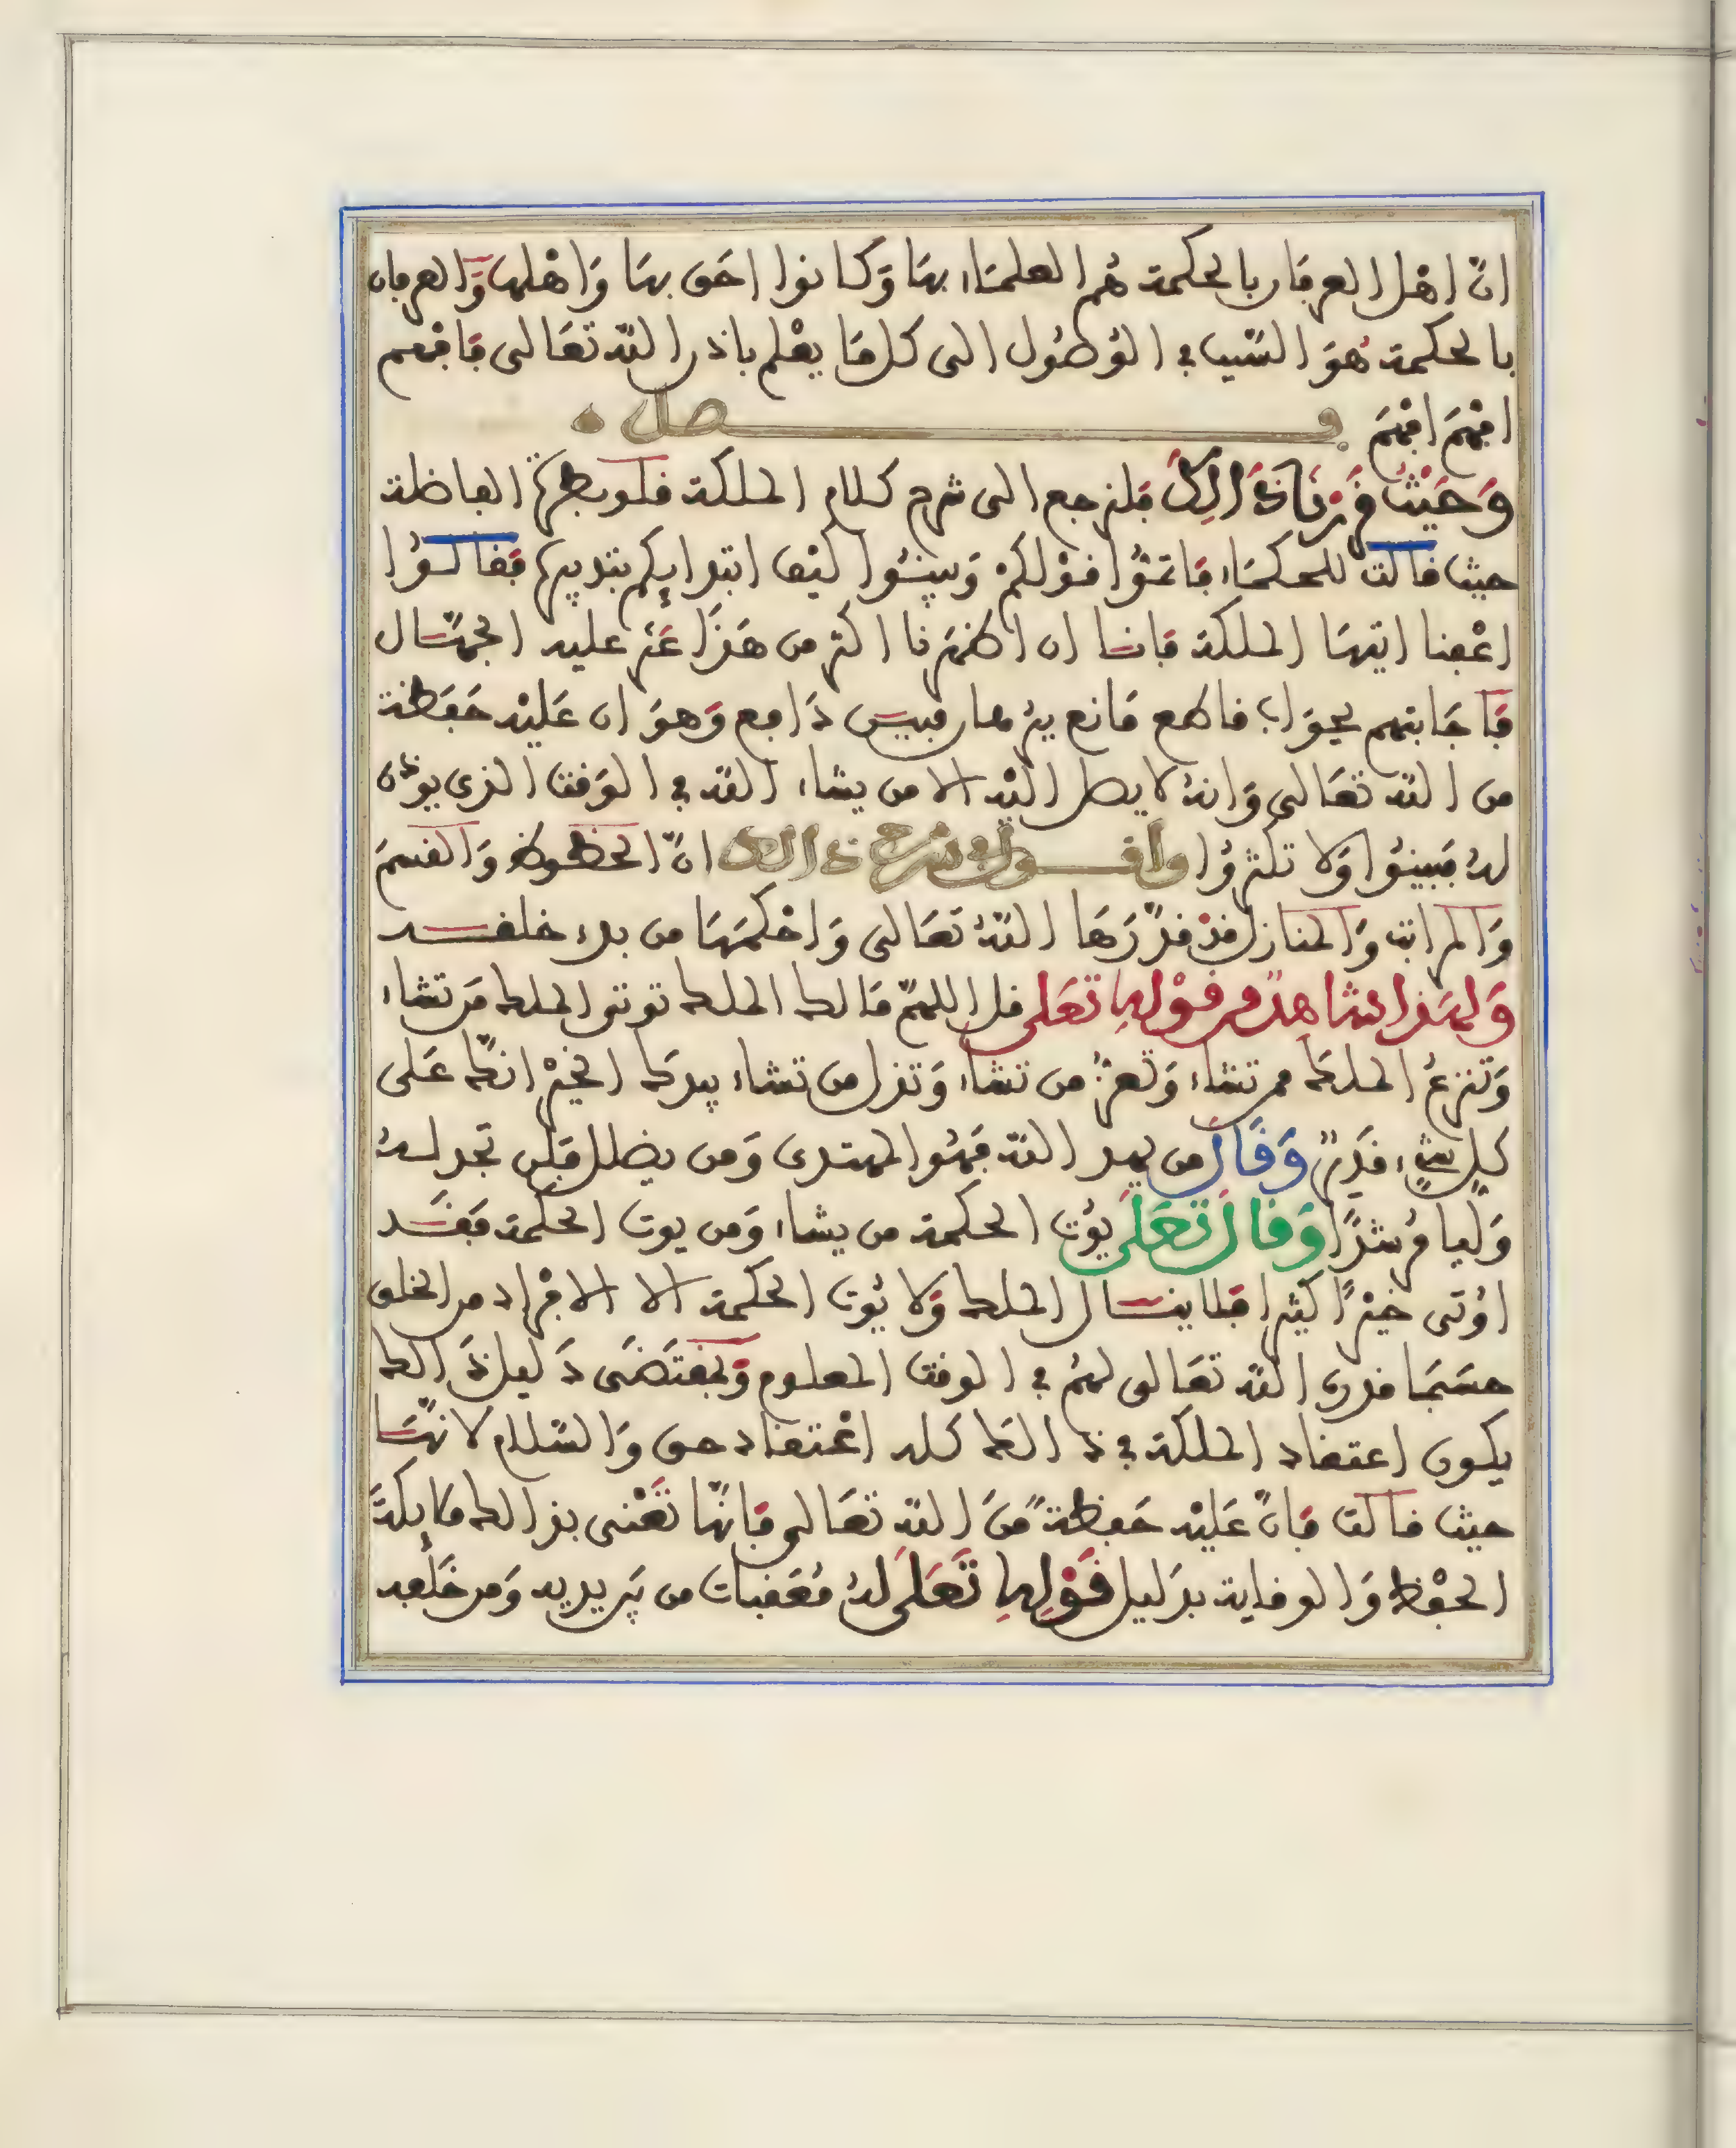 انّ اهْل العرفان بالحكمة هُم العلمَاء بهَا وَكانوا احَق بهَا وَاهْلهَا وَالعرفان
بالحكمة هُوَ السّبب في الوُصُول الى كل مَا يعْلم باذن اللّه تعَالى فَافهم
افهَم افهَم فصل
وَحَيْث قرّرنَا ذَالك فلنرجع الى شرح كلام الملكة قلوبطرة الفاضلة
حيث قالت للحكمَاء فَاتمّوُا قوْلكمْ وَبينُوا كيْف ابتدايكم بتدبيرها فقالـوُا
اعْفنا ايتهَا الملكة فاننا ان اظهَرنا اكثر من هَذَا عَثر عليه الجهّـال
فَاجَابتهم بجوَاب قاطع مَانع نفيس دَافع وَهوَ ان عَليْه حَفَظة
من اللّه تعَالى وَانهُ لا يصل اليْه الا من يشاء اللّه في الوَقت الذى يوذن
لهُ فَبينوُا وَلا تكثرُوا واقـول شرح ذالك انّ الحظوظ وَالقسمَ
وَالمراتب وَالمنازل قدْ قدّرَهَا اللّهُ تعَالى وَاحْكمَهَا من بدء خلقـه
وَلهَذا شاهدٌ من قوْله تعَلى قل اللهمّ مَالك الملك توتى الملك مَن تشاء
وَتنزعُ الملك ممن تشاء وَتعزّ من تشاء وَتذل من تشاء بيدك الخيْر انكَ عَلى
كلِ شيْء قَديرٌ وَقَال من يهد اللّه فهُوَ المهتدى وَمن يضلل فلن تجد لهُ
وَليا مُرشدًا وَقال تعَلى يُوتى الحكمة من يشاء وَمن يوت الحكمة فقَـد
اوُتى خيْرًا كثيرا فلا ينـال الملك وَلا يُوت الحكمة الا الافرَاد من الخلق
حسَبمَا قدره اللّه تعَالى لهُم في الوقت المعلوم وَبمقتَضَى دَليل ذَالك
يكون اعتقاد الملكة في ذالك كله اعْتقاد حق وَالسّلام لانهّـا
حيث قالت فانّ عَليْه حَفظة منَ اللّه تعَالى فَانهّا تَعْنى بذالك ملايكة
الحفْظ وَالوقاية بدَليل قوْله تعَلى لهُ مُعَقبات من بَين يديه وَمن خَلفه